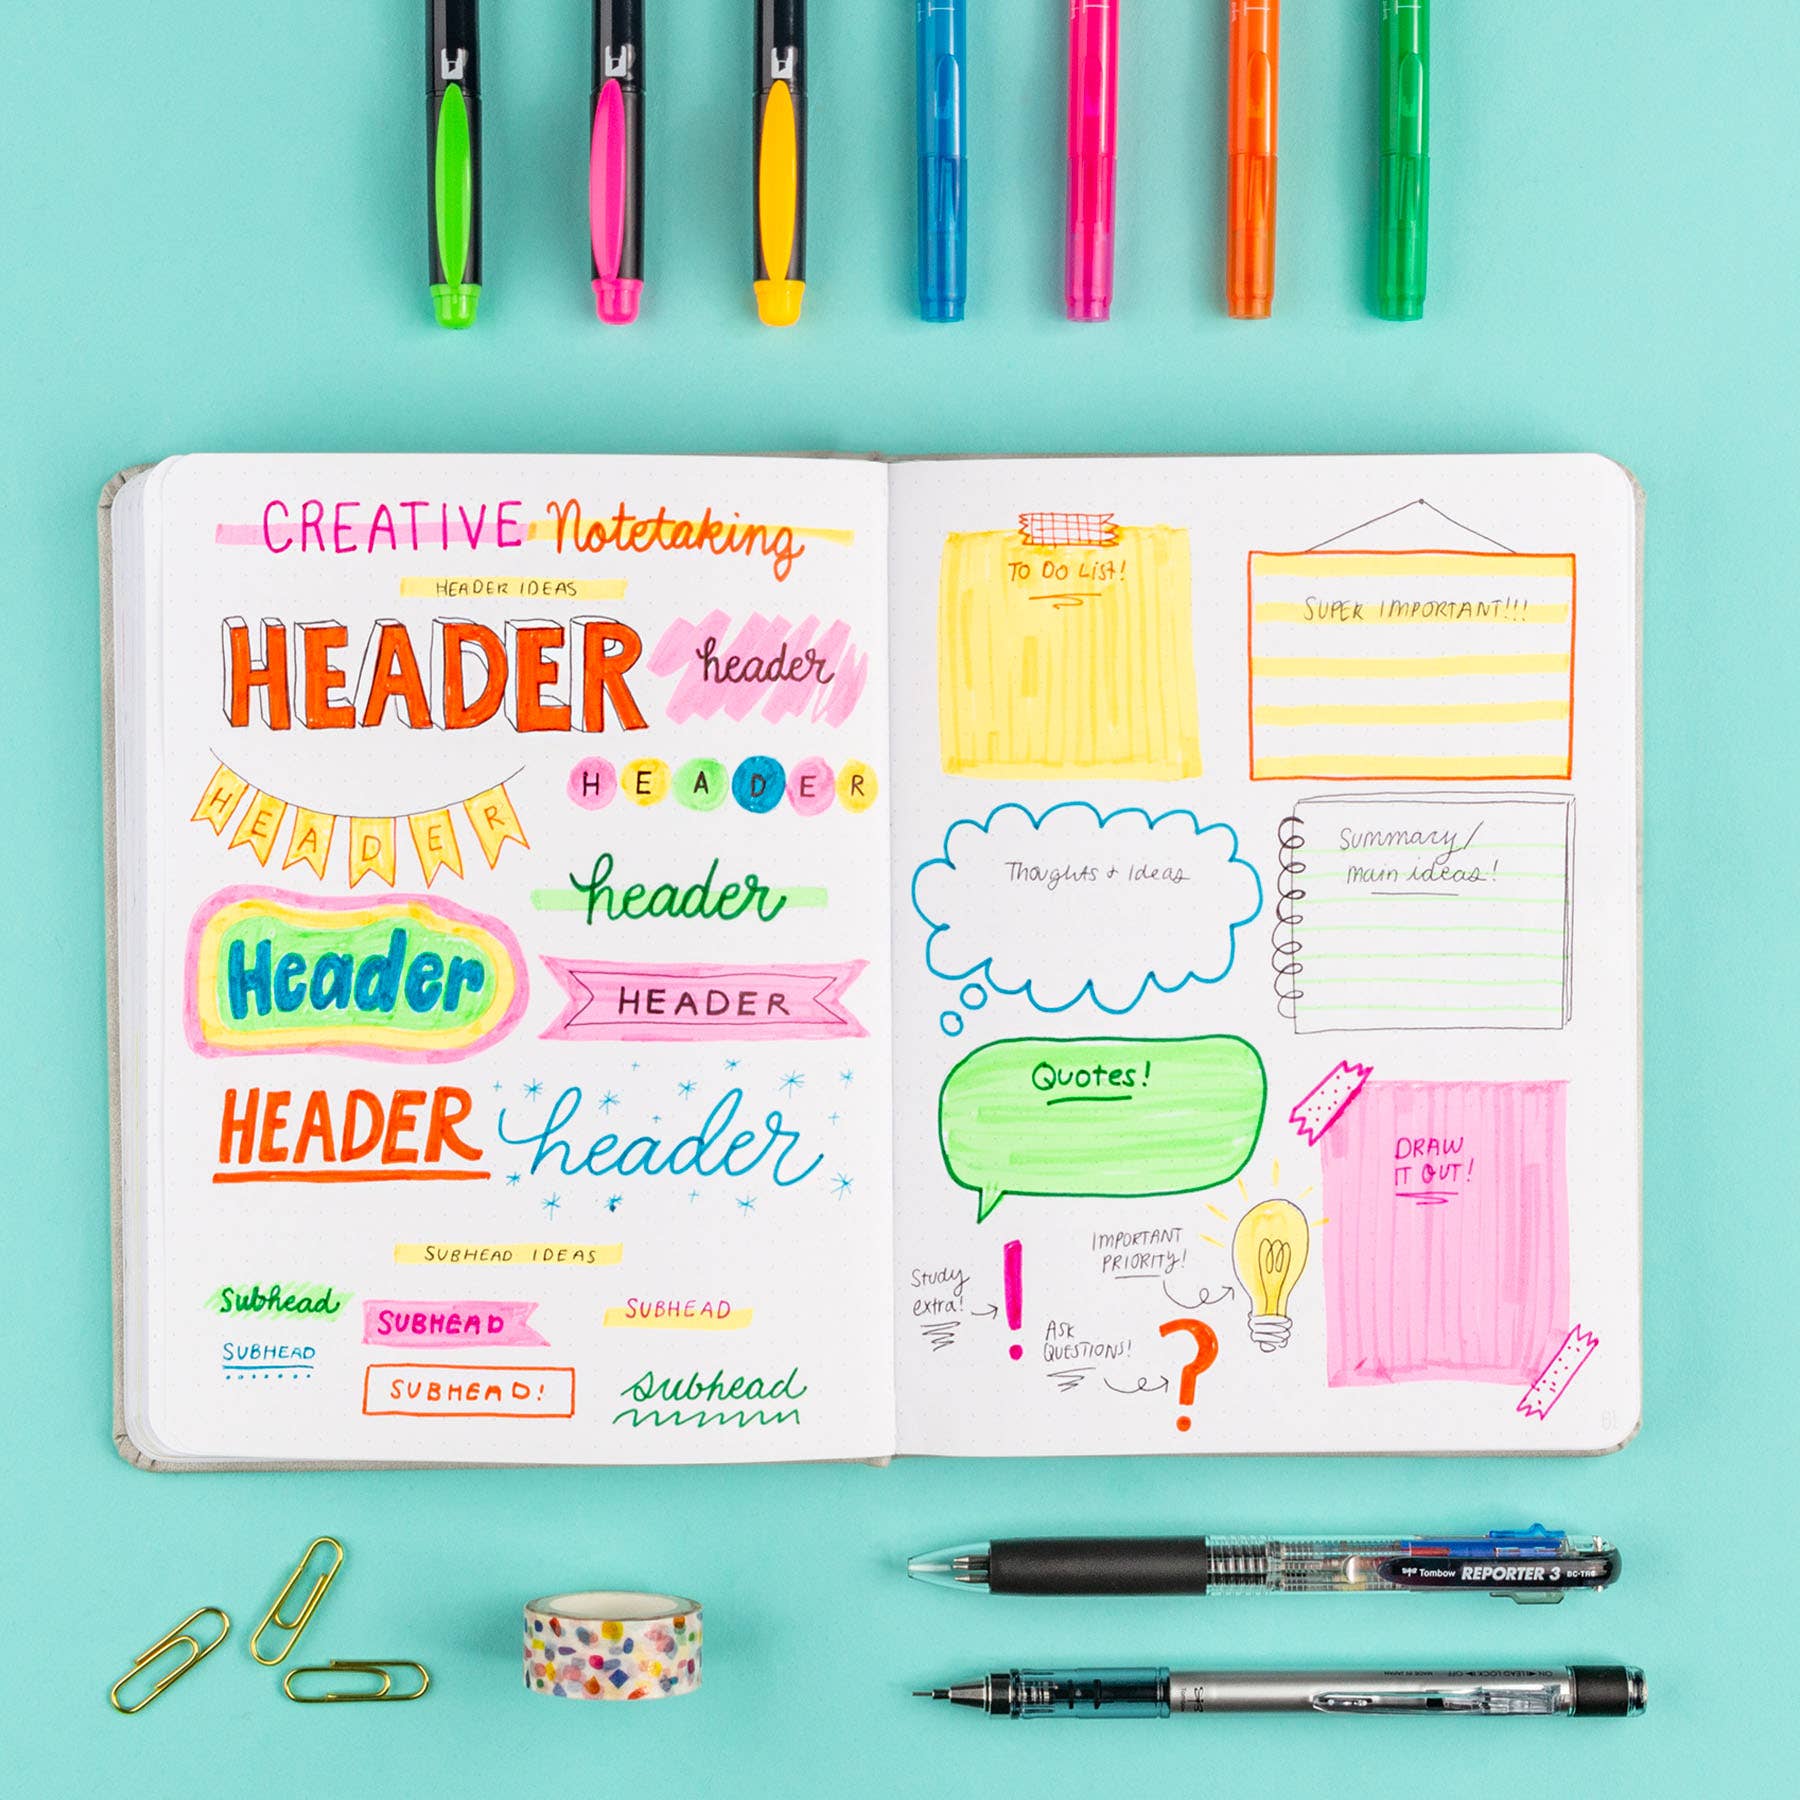 CREATIVE Notetaking
HEADER IDEAS
HEADER
header
HEADER
HEADER
header
Header
HEADER
HEADER
header
SUBHEAD IDEAS
Subhead
SUBHEAD
SUBHEAD
SUBHEAD
SUBHEAD!
subhead
TO DO LIST!
SUPER IMPORTANT!!!
Thoughts + Ideas
Summary/
main ideas!
Quotes!
DRAW
IT OUT!
IMPORTANT
PRIORITY!
Study
extra!
ASK
QUESTIONS!
Tombow REPORTER 3 BC-TRC
Tombow
MADE IN JAPAN ON LEAD LOCK OFF